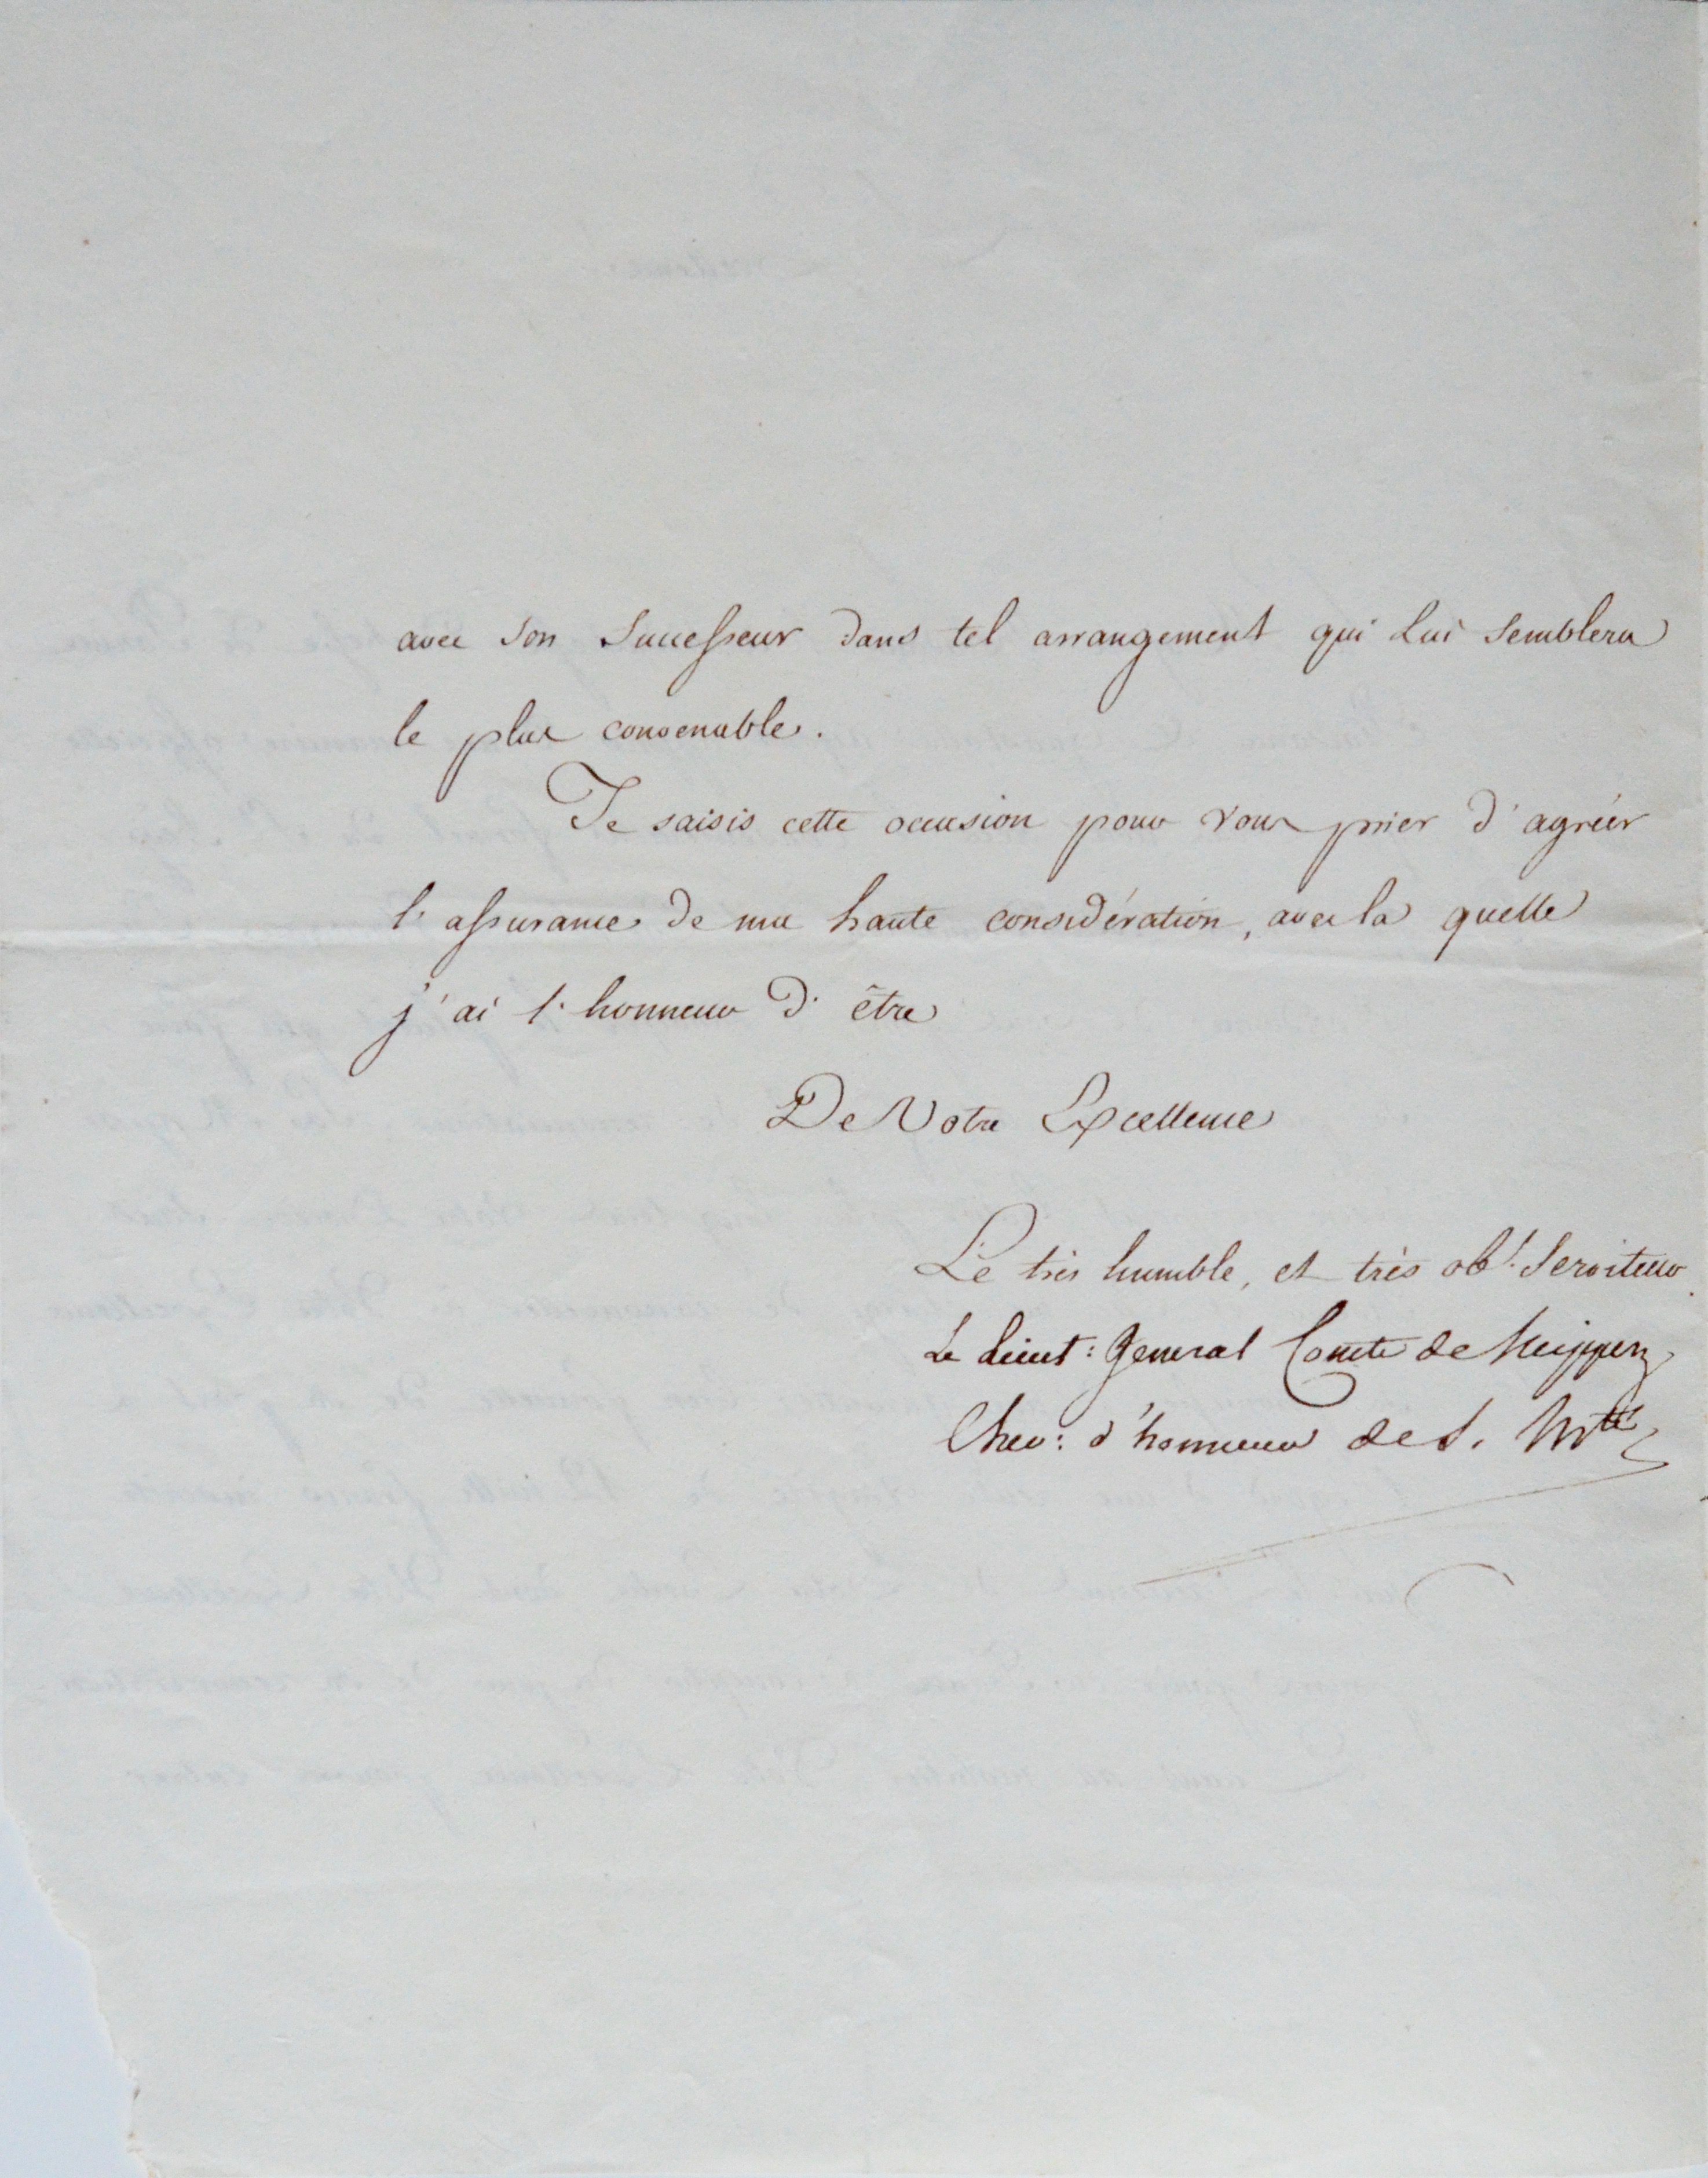 avec son Successeur dans tel arrangement qui lui semblera
le plus convenable.
Je saisis cette occasion pour vous prier d'agréer
l'assurance de ma haute considération, avec la quelle
j'ai l'honneur d'être
De Votre Excellence
Le très humble, et très obt. Serviteur
Le Lieut: General Comte de Neipperg
Chev: d'honneur de S. Mté